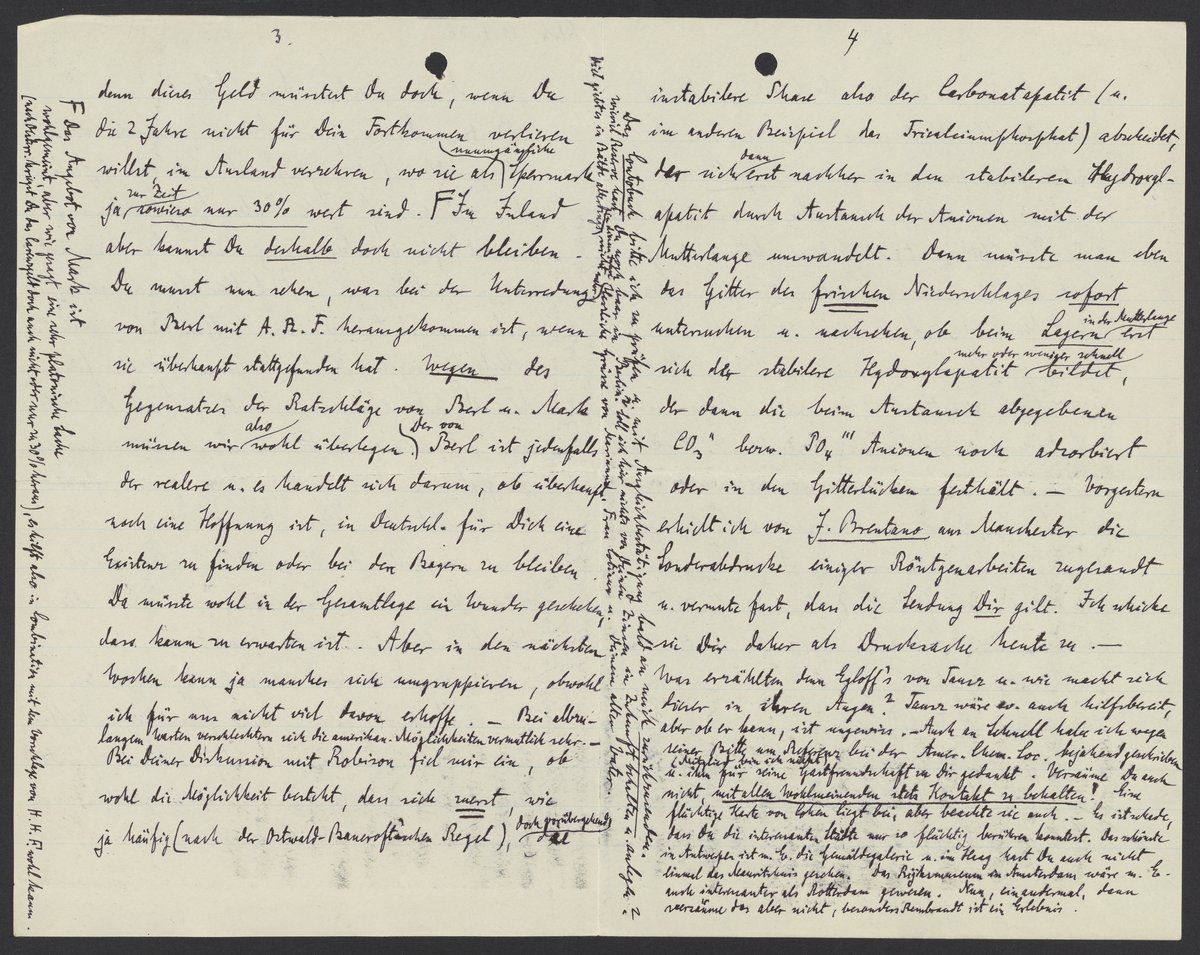 3.
denn dieses Geld müsstest Du doch, wenn Du
die 2 Jahre nicht für Dein Fortkommen verlieren
willst, im Ausland verzehren, wo sie als unumgängliche Sperrmark
ja zur Zeit sowieso nur 30% wert sind. F Im Inland
aber kannst Du deshalb doch nicht bleiben.
Du musst nun sehen, was bei der Unterredung
von Berl mit A. R. F. herausgekommen ist, wenn
sie überhaupt stattgefunden hat. Wegen des
Gegensatzes der Ratschläge von Berl u. Mark
müssen wir also wohl überlegen. Der von Berl ist jedenfalls
der realere u. es handelt sich darum, ob überhaupt
noch eine Hoffnung ist, in Deutschl. für Dich eine
Existenz zu finden oder bei den Bayern zu bleiben.
Da müsste wohl in der Gesamtlage ein Wunder geschehen,
dass kaum zu erwarten ist. Aber in den nächsten
Wochen kann ja manches sich umgruppieren, obwohl
ich für uns nicht viel davon erhoffe. – Bei allzu-
langem Warten verschlechtern sich die amerikan. Möglichkeiten vermutlich sehr. –
Bei Deiner Diskussion mit Robison fiel mir ein, ob
wohl die Möglichkeit besteht, dass sich zuerst, wie
ja häufig (nach der Ostwald-Bancroft'schen Regel), doch vorübergehend die
F Das Angebot von Mark ist
wohlgemeint, aber wie gesagt eine sehr platonische Sache
(nach Österr. kriegst Du das Geld doch auch nicht oder nur zu 30% heraus), es hilft also in Combination mit dem Vorschlage von H. H. F. wohl kaum.
4
instabilere Phase also der Carbonatapatit (u.
im anderen Beispiel das Tricalciumphosphat) abscheidet,
der sich dann erst nachher in den stabileren Hydroxyl-
apatit durch Austausch der Anionen mit der
Mutterlauge umwandelt. Dann müsste man eben
das Gitter des frischen Niederschlages sofort
untersuchen u. nachsehen, ob beim Lagern in der Mutterlauge erst
sich der stabilere Hydoxylapatit mehr oder weniger schnell bildet,
der dann die beim Austausch abgegebenen
CO₃" bezw. PO₄''' Anionen noch adsorbiert
oder in den Gitterlücken festhält. – Vorgestern
erhielt ich von J. Brentano aus Manchester die
Sonderabdrucke einiger Röntgenarbeiten zugesandt
u. vermute fast, dass die Sendung Dir gilt. Ich schicke
sie Dir daher als Drucksache heute zu. –
Was erzählten denn Egloff's von Tausz u. wie macht sich
dieser in ihren Augen? Tausz wäre ev. auch hilfsbereit,
aber ob er kann, ist ungewiss. – Auch an Schnell habe ich wegen
seiner Bitte um Referenz bei der Amer. Chem. Soc. bejahend geschrieben
(Mitglied bin ich nicht)
u. ihm für seine Gastfreundschaft zu Dir gedankt. Versäume Du auch
nicht mit allen Wohlmeinenden stets Kontakt zu behalten! Eine
flüchtige Karte von Cohen liegt bei, aber beachte sie auch. – Es ist schade,
dass Du die interessanten Städte nur so flüchtig berühren konntest. Das schönste
in Antwerpen ist m. E. die Gemäldegalerie u. im Haag hast Du auch nicht
einmal das Mauritshuis gesehen. Das Rijksmuseum in Amsterdam wäre m. E.
auch interessanter als Rotterdam gewesen. Nun, ein andermal, dann
versäume das aber nicht, besonders Rembrandt ist ein Erlebnis.
Das Contobuch bitte ich zu prüfen u. mit Ausgleichbestätigung bald an mich zurückzusenden.
Wieviel Reserve hast Du noch hier in Berlin u. soll ich hier nichts von Deinen Zinsen in Zukunft behalten u. anlegen?
herzliche Grüsse von Marianne, Frau u. Deinem alten Vater.